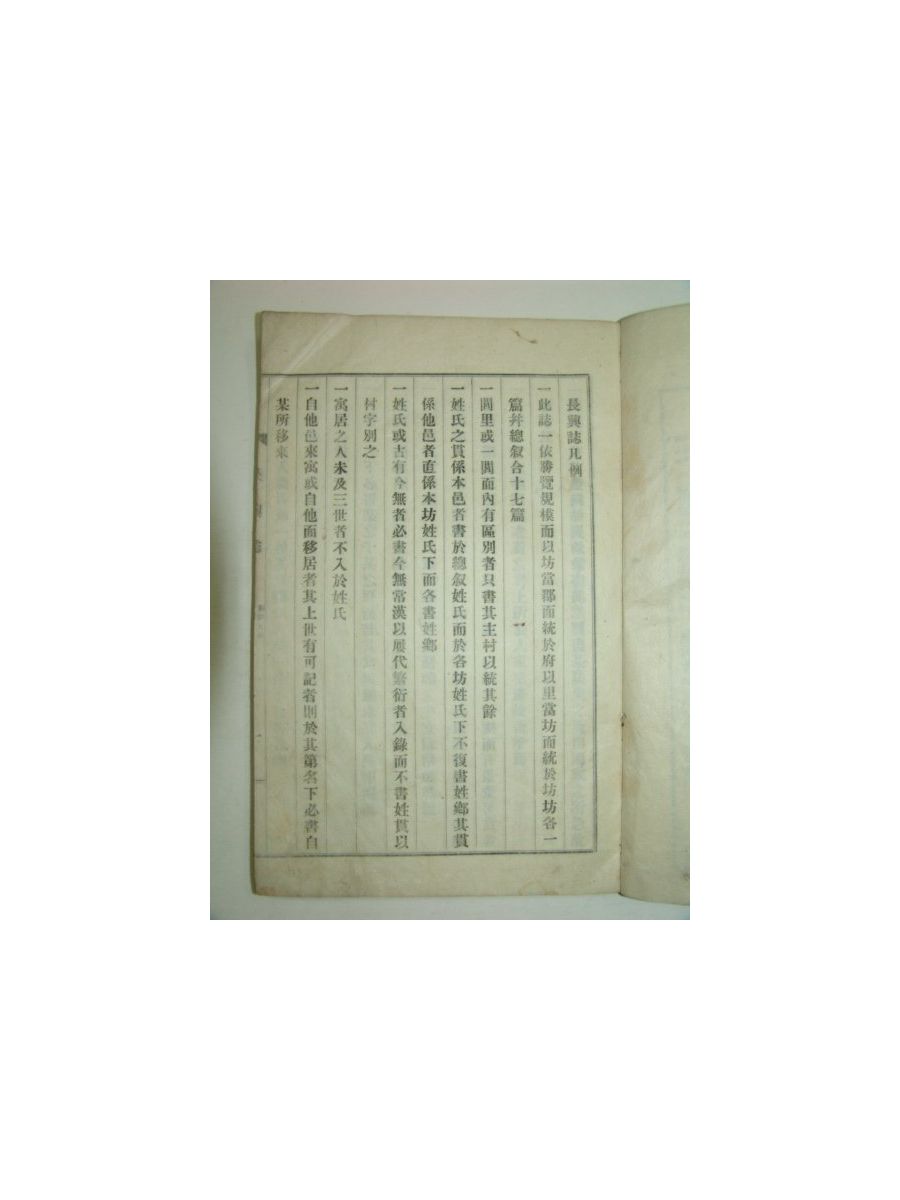 長興誌凡例
一此誌一依勝覽規模而以坊當郡面統於府以里當坊而統於坊坊各一
篇幷總叙合十七篇
一閭里或一閭而內有區別者只書其主村以統其餘
一姓氏之貫係本邑者書於總叙姓氏而於各坊姓氏下不復書姓鄕其貫
係他邑者直係本坊姓氏下而各書姓鄕
一姓氏或古有今無者必書今無常漢以屢代繁衍者入錄而不書姓貫以
村字別之
一寓居之人未及三世者不入於姓氏
一自他邑來寓或自他面移居者其上世有可記者則於其第名下必書自
某所移來